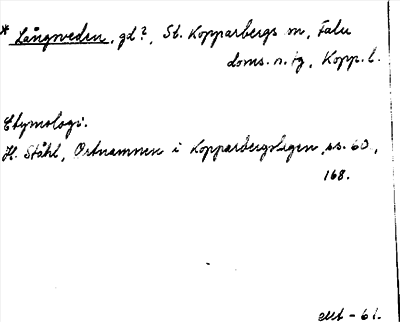 * Långsveden, gd?, St. Kopparbergs sn, Falu
doms. n. tg, Kopp. l.
Etymologi.
H. Ståhl, Ortnamnen i Kopparbergslagen, ss. 60,
168.
- 61.